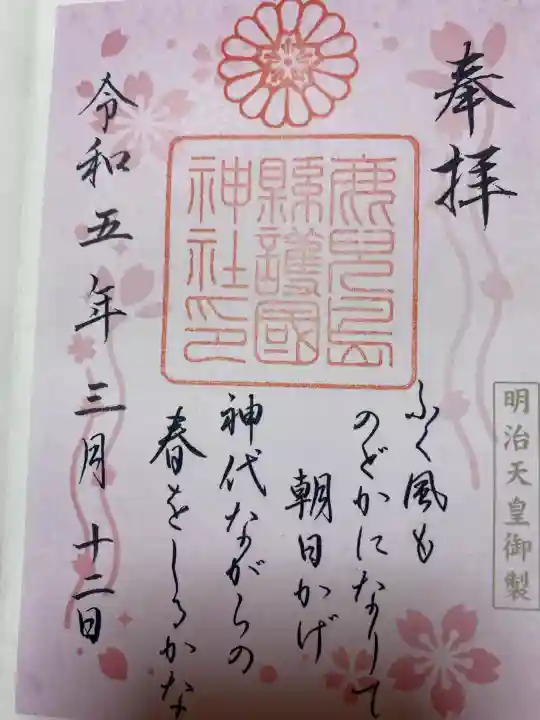 奉拝
明治天皇御製
鹿児島
縣護國
神社印
ふく風も
のどかになりて
朝日かげ
神代ながらの
春をしるかな
令和五年三月十二日